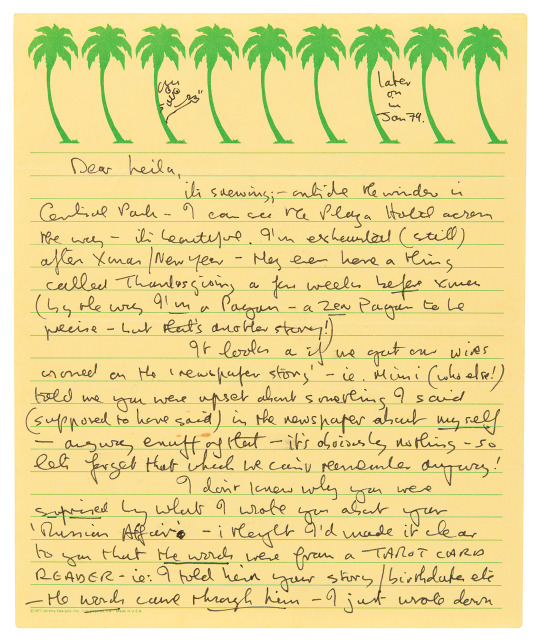 Later
on
in
Jan 79.
Dear Leila,
its snowing;- outside the window is
Central Park - I can see the Plaza Hotel across
the way - its beautiful. I'm exhausted (still)
after Xmas/New Year - they even have a thing
called Thanksgiving a few weeks before xmas
(by the way I'm a Pagan - a Zen Pagan to be
precise - but that's another story!)
It looks as if we got our wires
crossed on the 'newspaper story' - ie. Mimi (who else!)
told me you were upset about something I said
(supposed to have said) in the newspaper about myself
- anyway enuff of that - its obviously nothing - so
lets forget that which we can't remember anyway!
I don't know why you were
suprised by what I wrote you about your
'Russian Affair' - i thought I'd made it clear
to you that the words were from a TAROT CARD
READER - ie: I told him your story/birthdate etc
- the words came through him - I just wrote down